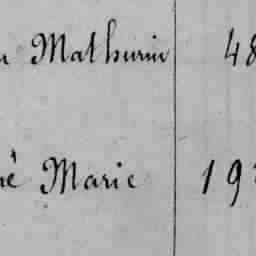 Mathurin 48
né Marie 19